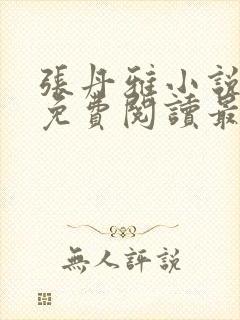 張丹雅小說
免費閱讀最
無人評說